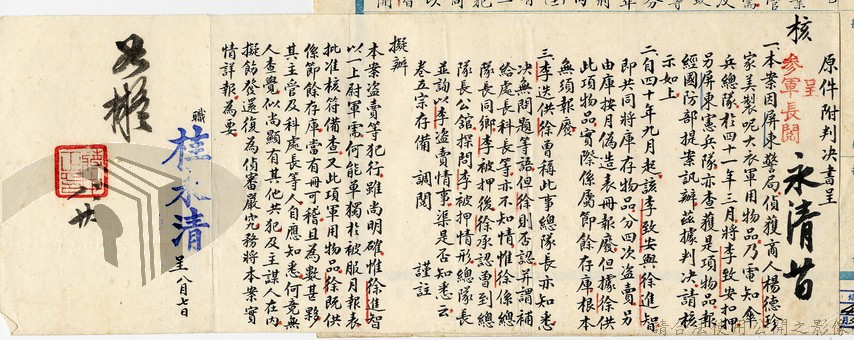 原件附判決書呈
核
呈
參軍長閱
永清
一、本案因屏東警局偵獲商人楊德珍
家美製呢大衣軍用物品乃需知傘
兵總隊於四十一年三月將李致安扣押
另屏東憲兵隊亦查獲是項物品報
經國防部提案訊辦茲據判決請核
示如上
二自四十年九月起該李致安與徐進智
即共同將庫存物品分四次盜賣另
由庫按月偽造表冊報廢但據徐供
此項物品實際係屬節餘存庫根本
無須報廢
三李迭供徐曾稱此事總隊長亦知悉
決無問題等語但徐則否認并謂補
給處長科長等亦不知情惟徐係總
隊長同鄉李被押後徐承認曾到總
隊長公館探問李被押情形總隊長
並詢以李盜賣情事渠是否知悉云
卷五宗存備 調閱 謹註
擬辦
本案盜賣等犯行雖尚明確惟徐進智
以一上尉軍需何能單獨於被服月報表
批准核符備查又此項軍用物品徐既供
係節餘存庫當有冊可稽且為數甚夥
其主管及科處長等人自應知悉何竟無
人查覺似尚顯有其他共犯及主謀人在內
擬飭發還復為偵審嚴究務將本案實
情詳報為要
職 桂永清 呈八月七
如擬
八廿
請合法使用公開之影像